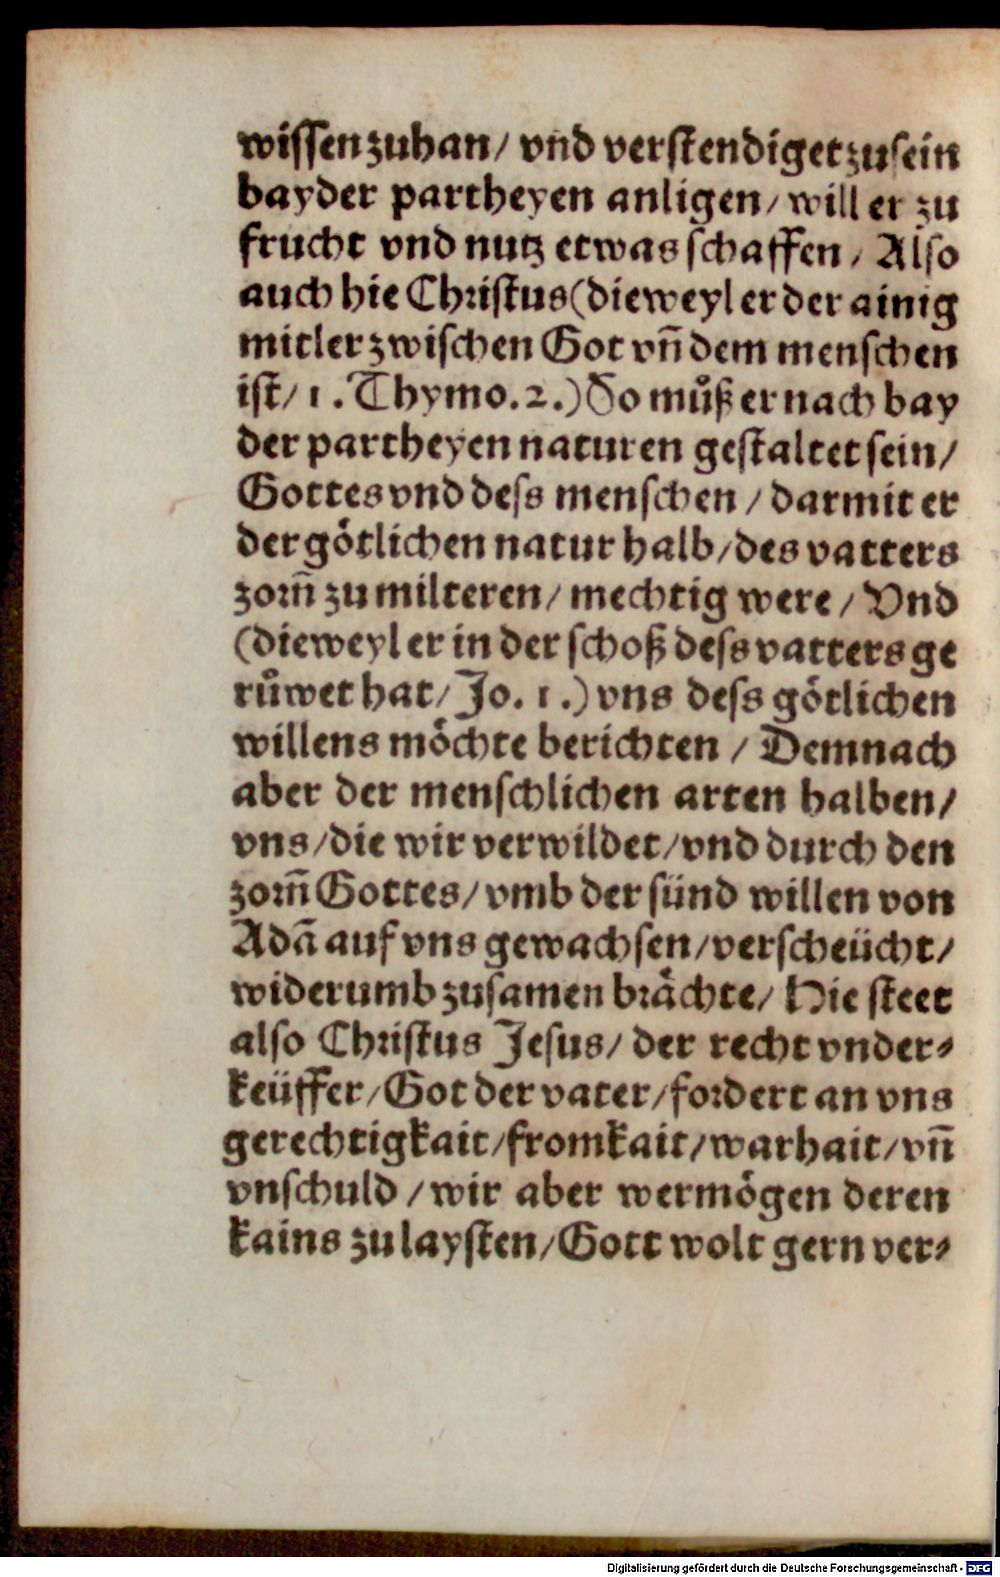 wissen zuhan/ vnd verstendiget zusein
bayder partheyen anligen/ will er zu
frucht vnd nutz etwas schaffen/ Also
auch hie Christus (dieweyl er der ainig
mitler zwischen Got vñ dem menschen
ist/ 1. Thymo. 2.) So můß er nach bay
der partheyen naturen gestaltet sein/
Gottes vnd dess menschen/ darmit er
der götlichen natur halb/ des vatters
zorñ zu milteren/ mechtig were/ Vnd
(dieweyl er in der schoß dess vatters ge
růwet hat/ Jo. 1.) vns dess götlichen
willens möchte berichten/ Demnach
aber der menschlichen arten halben/
vns/ die wir verwildet/ vnd durch den
zorñ Gottes/ vmb der sünd willen von
Adã auf vns gewachsen/ verscheücht/
widerumb zusamen brächte/ Hie steet
also Christus Jesus/ der recht vnder⸗
keüffer/ Got der vater/ fordert an vns
gerechtigkait/ fromkait/ warhait/ vñ
vnschuld/ wir aber wermögen deren
kains zu laysten/ Gott wolt gern ver⸗
Digitalisierung gefördert durch die Deutsche Forschungsgemeinschaft - DFG